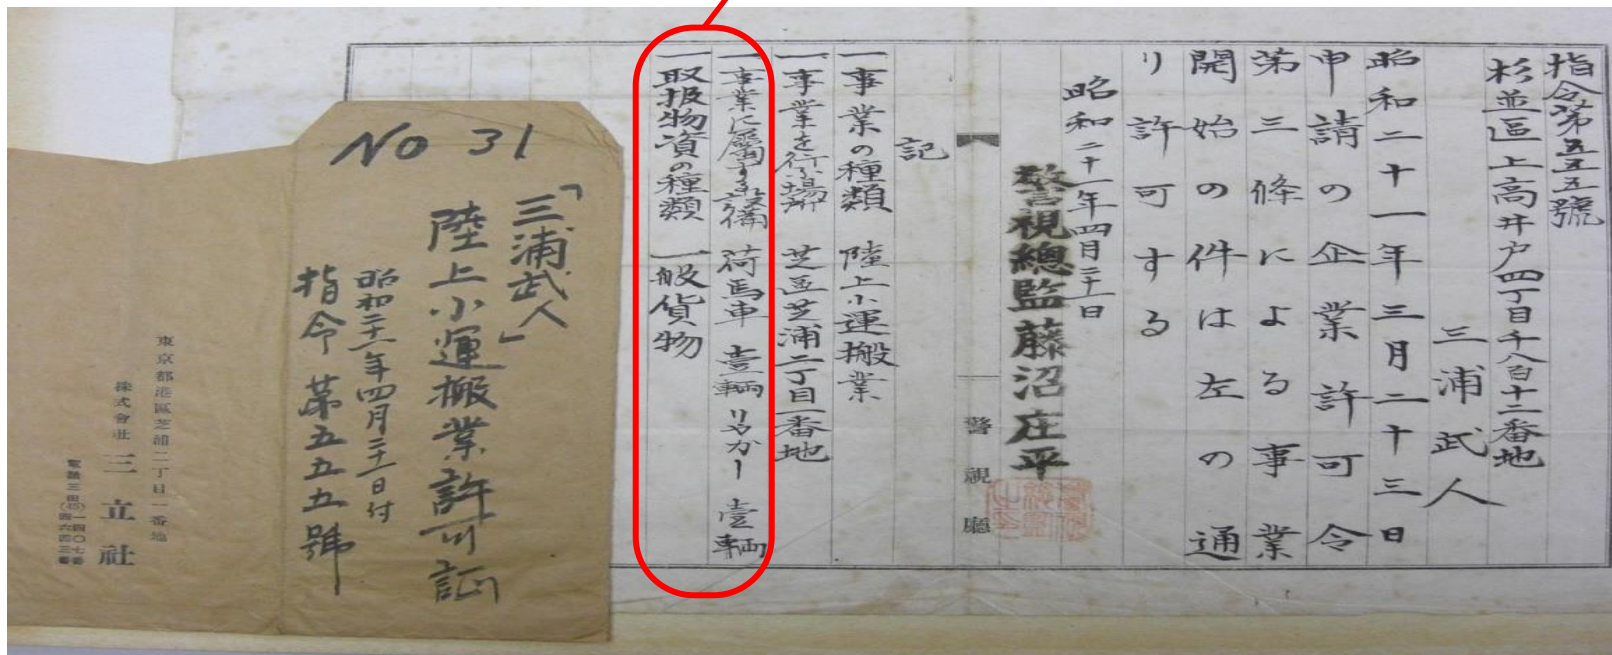 指令第五五五號
杉並區上高井戸四丁目千八百十二番地
三浦武人
昭和二十一年三月二十三日
申請の企業許可令
第三條による事業
開始の件は左の通
り許可する
昭和二十一年四月二十二日
警視總監藤沼庄平
警視廳
記
一事業の種類 陸上小運搬業
一事業を行ふ場所 芝區芝浦二丁目一番地
一事業に屬する設備 荷馬車 壹輛 リヤカー 壹輛
一取扱物資の種類 一般貨物
NO 31
「三浦武人」
陸上小運搬業許可証
昭和二十一年四月二十二日付
指令第五五五號
東京都港區芝浦二丁目一番地
株式會社 三立社